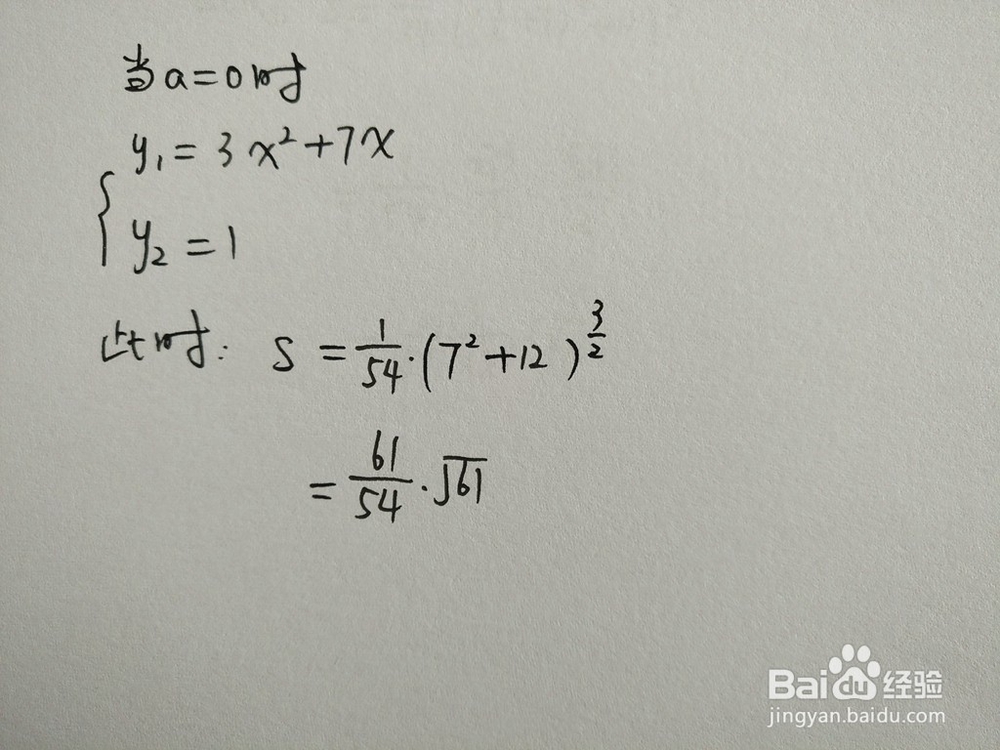 当a=0时
y₁=3x²+7x
y₂=1
此时: S=1/54·(7²+12)^(3/2)
=61/54·√61
Baidu经验
jingyan.baidu.com